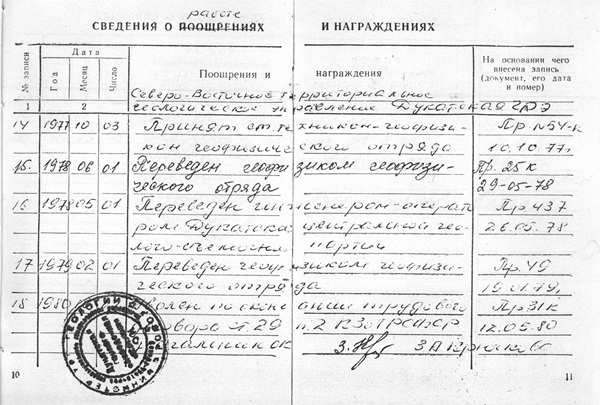 работе
СВЕДЕНИЯ О ПООЩРЕНИЯХ И НАГРАЖДЕНИЯХ
№ записи Дата Поощрения и награждения На основании чего внесена запись (документ, его дата и номер)
Год Месяц Число
1 2
Северо-Восточное территориальное
геологическое управление Дукатская ГРЭ
14 1977 10 03 Принят ст. техником-геофизи- Пр N54-к
ком геофизического отряда 10.10.77г.
15. 1978 06 01 Переведен геофизиком геофизи- Пр. 25к
ческого отряда 29-05-78
16 1978 05 01 Переведен инженером-операто Пр 437
ром Дукатской центральной гео 26.05.78
лого-съемочн. партии
17 1979 02 01 Переведен геофизиком геофизи- Пр. 49
ческого отряда 19.01.79.
18 1980 по окончании трудового Пр 31к
договора ст. 29 п.2 КЗоТ РСФСР 12.05.80
Начальник ОК
10 11